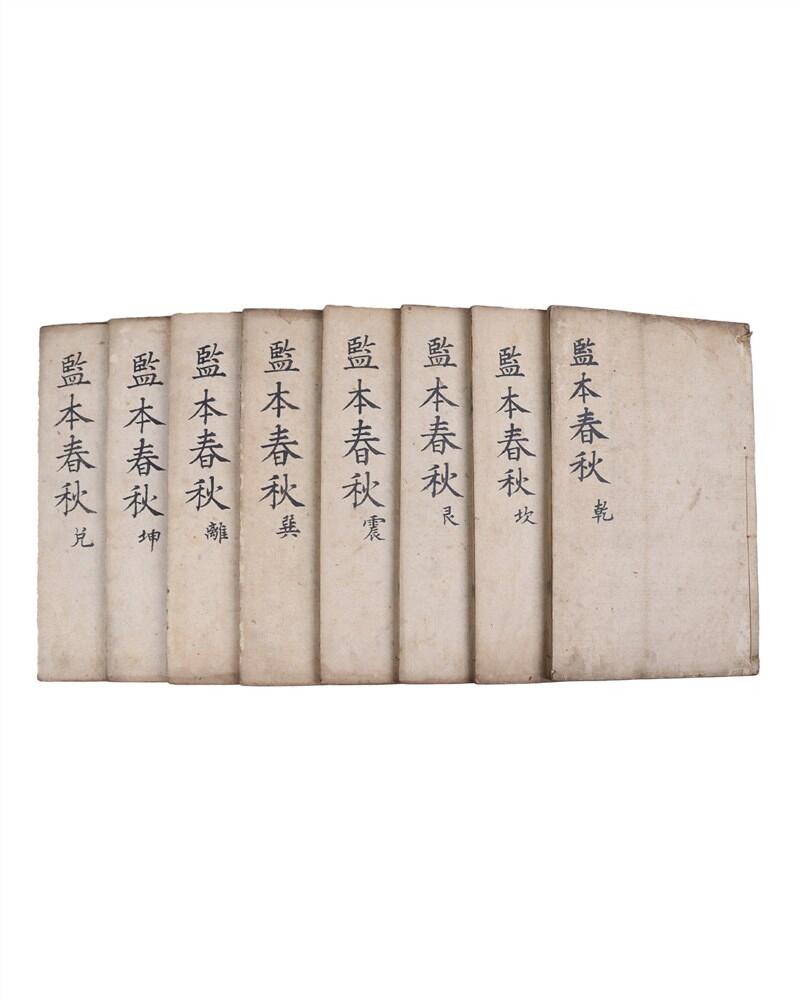 監本春秋 乾
監本春秋 坎
監本春秋 艮
監本春秋 震
監本春秋 巽
監本春秋 離
監本春秋 坤
監本春秋 兌